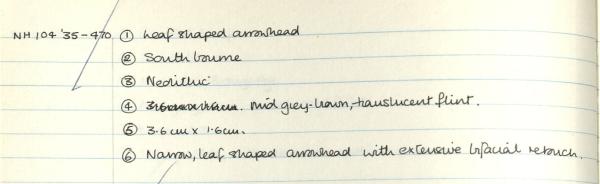 NH 104 '35-470 ① Leaf shaped arrowhead
② Southbourne
③ Neolithic
④ 3.6cm x 1.6cm. Mid grey-brown, translucent flint.
⑤ 3.6 cm x 1.6cm.
⑥ Narrow, leaf shaped arrowhead with extensive bifacial retouch.